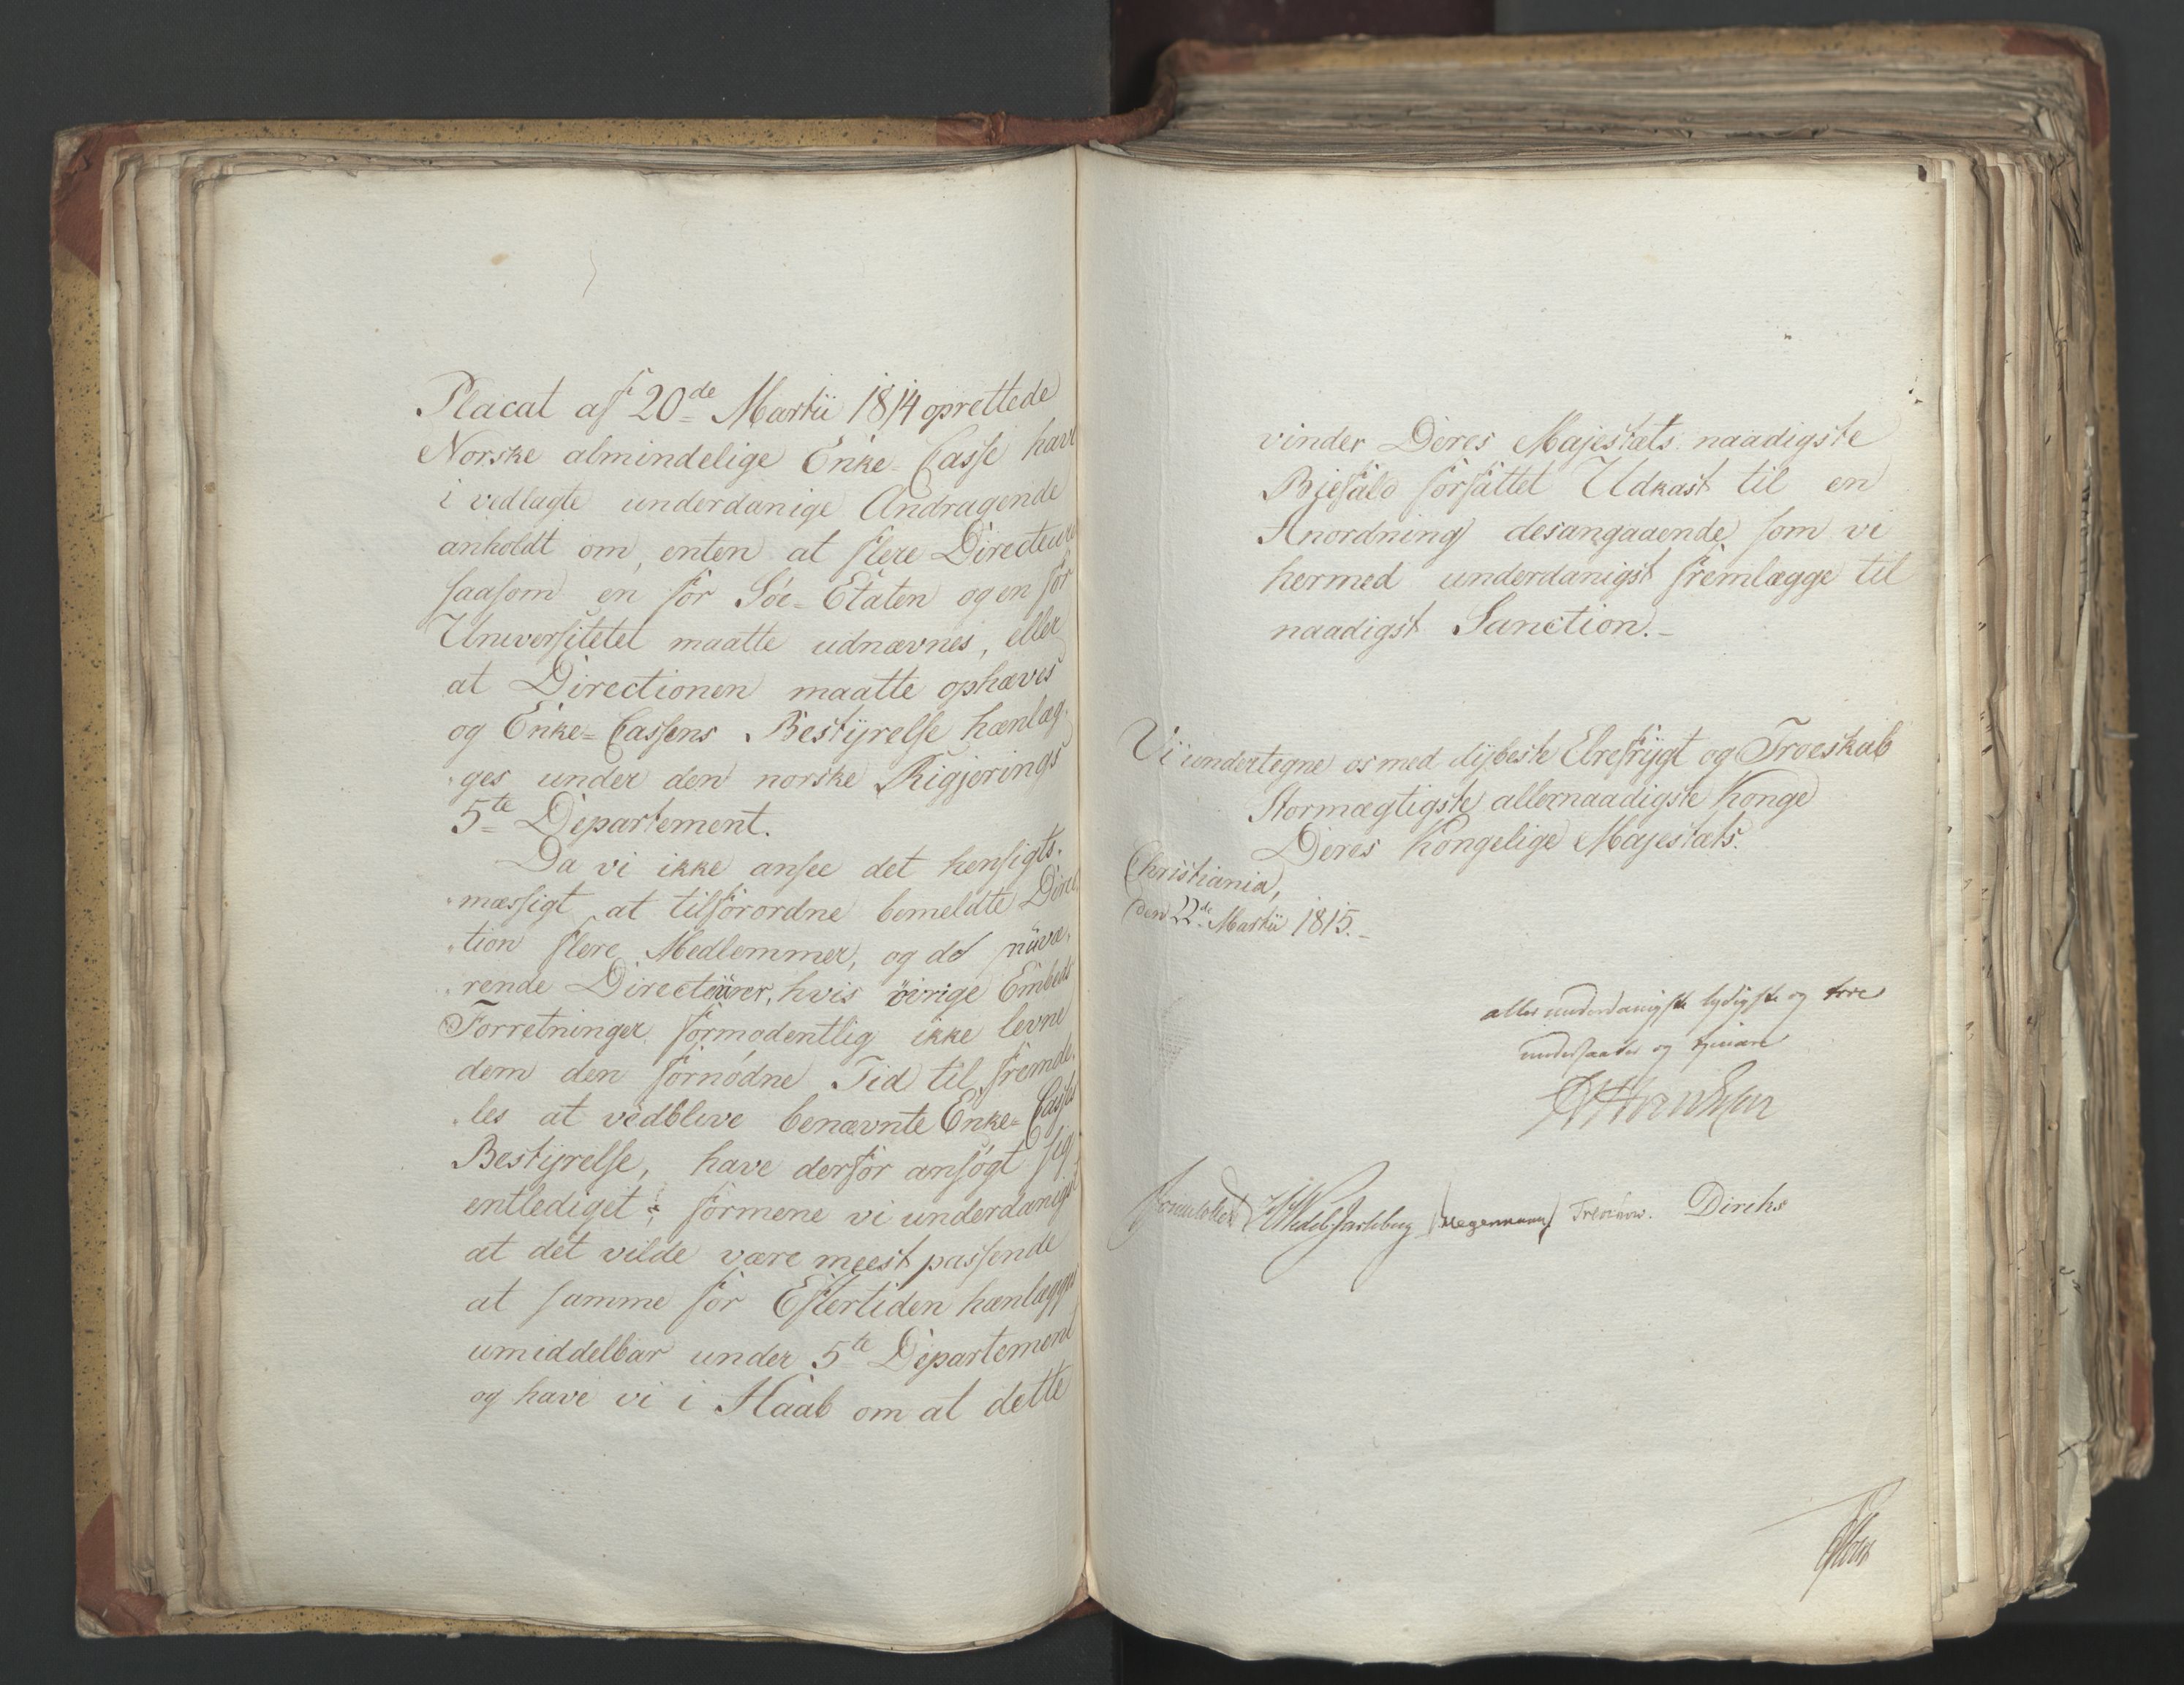 Placat af 20de Martii 1814 oprettede
Norske almindelige Enke-Casse have
i vedlagte underdanige Andragende
anholdt om, enten at flere Directeurer
saasom en for Söe-Etaten og en for
Universitetet maatte udnævnes, eller
at Directionen maatte ophæves
og Enke-Cassens Bestÿrelse hænlæg-
ges under den norske Rigjerings
5te Departement.
Da vi ikke ansee det hensigts-
mæssigt at tilforordne bemeldte Direc
tion flere Medlemmer, og de nuvæ-
rende Directeurer, hvis övrige Embeds
Forretninger formodentlig ikke levne
dem den fornödne Tid til fremde-
les at vedblive benævnte Enke-Casses
Bestÿrelse, have derfor ansögt sig
entlediget; formene vi underdanigst
at det vilde være meest passende
at samme for Eftertiden hænlægges
umiddelbar under 5te Departement
og have vi i Haab om at dette
vinder Deres Majestæts naadigste
Bjefald forfattet Udkast til en
Anordning desangaaende som vi
hermed underdanigst fremlægge til
naadigst Sanction.-
Vi undertegne os med dÿbeste Ærefrÿgt og Troeskab
Stormægtigste allernaadigste Konge
Deres Kongelige Majestæts.
Christiania,
den 22de Martii 1815.-
allerunderdanigste lydigste og troe
undersaatter og tjenere
Sommerhielm HWedel Jarlsberg Hegermann Treschow. Diriks